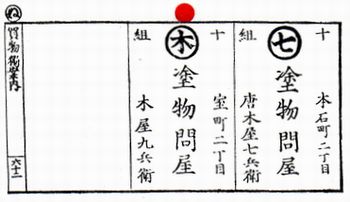 十 本石町二丁目
七 塗物問屋
組 唐木屋七兵衛
十 室町二丁目
木 塗物問屋
組 木屋九兵衛
ぬ 買物獨案内 六十二